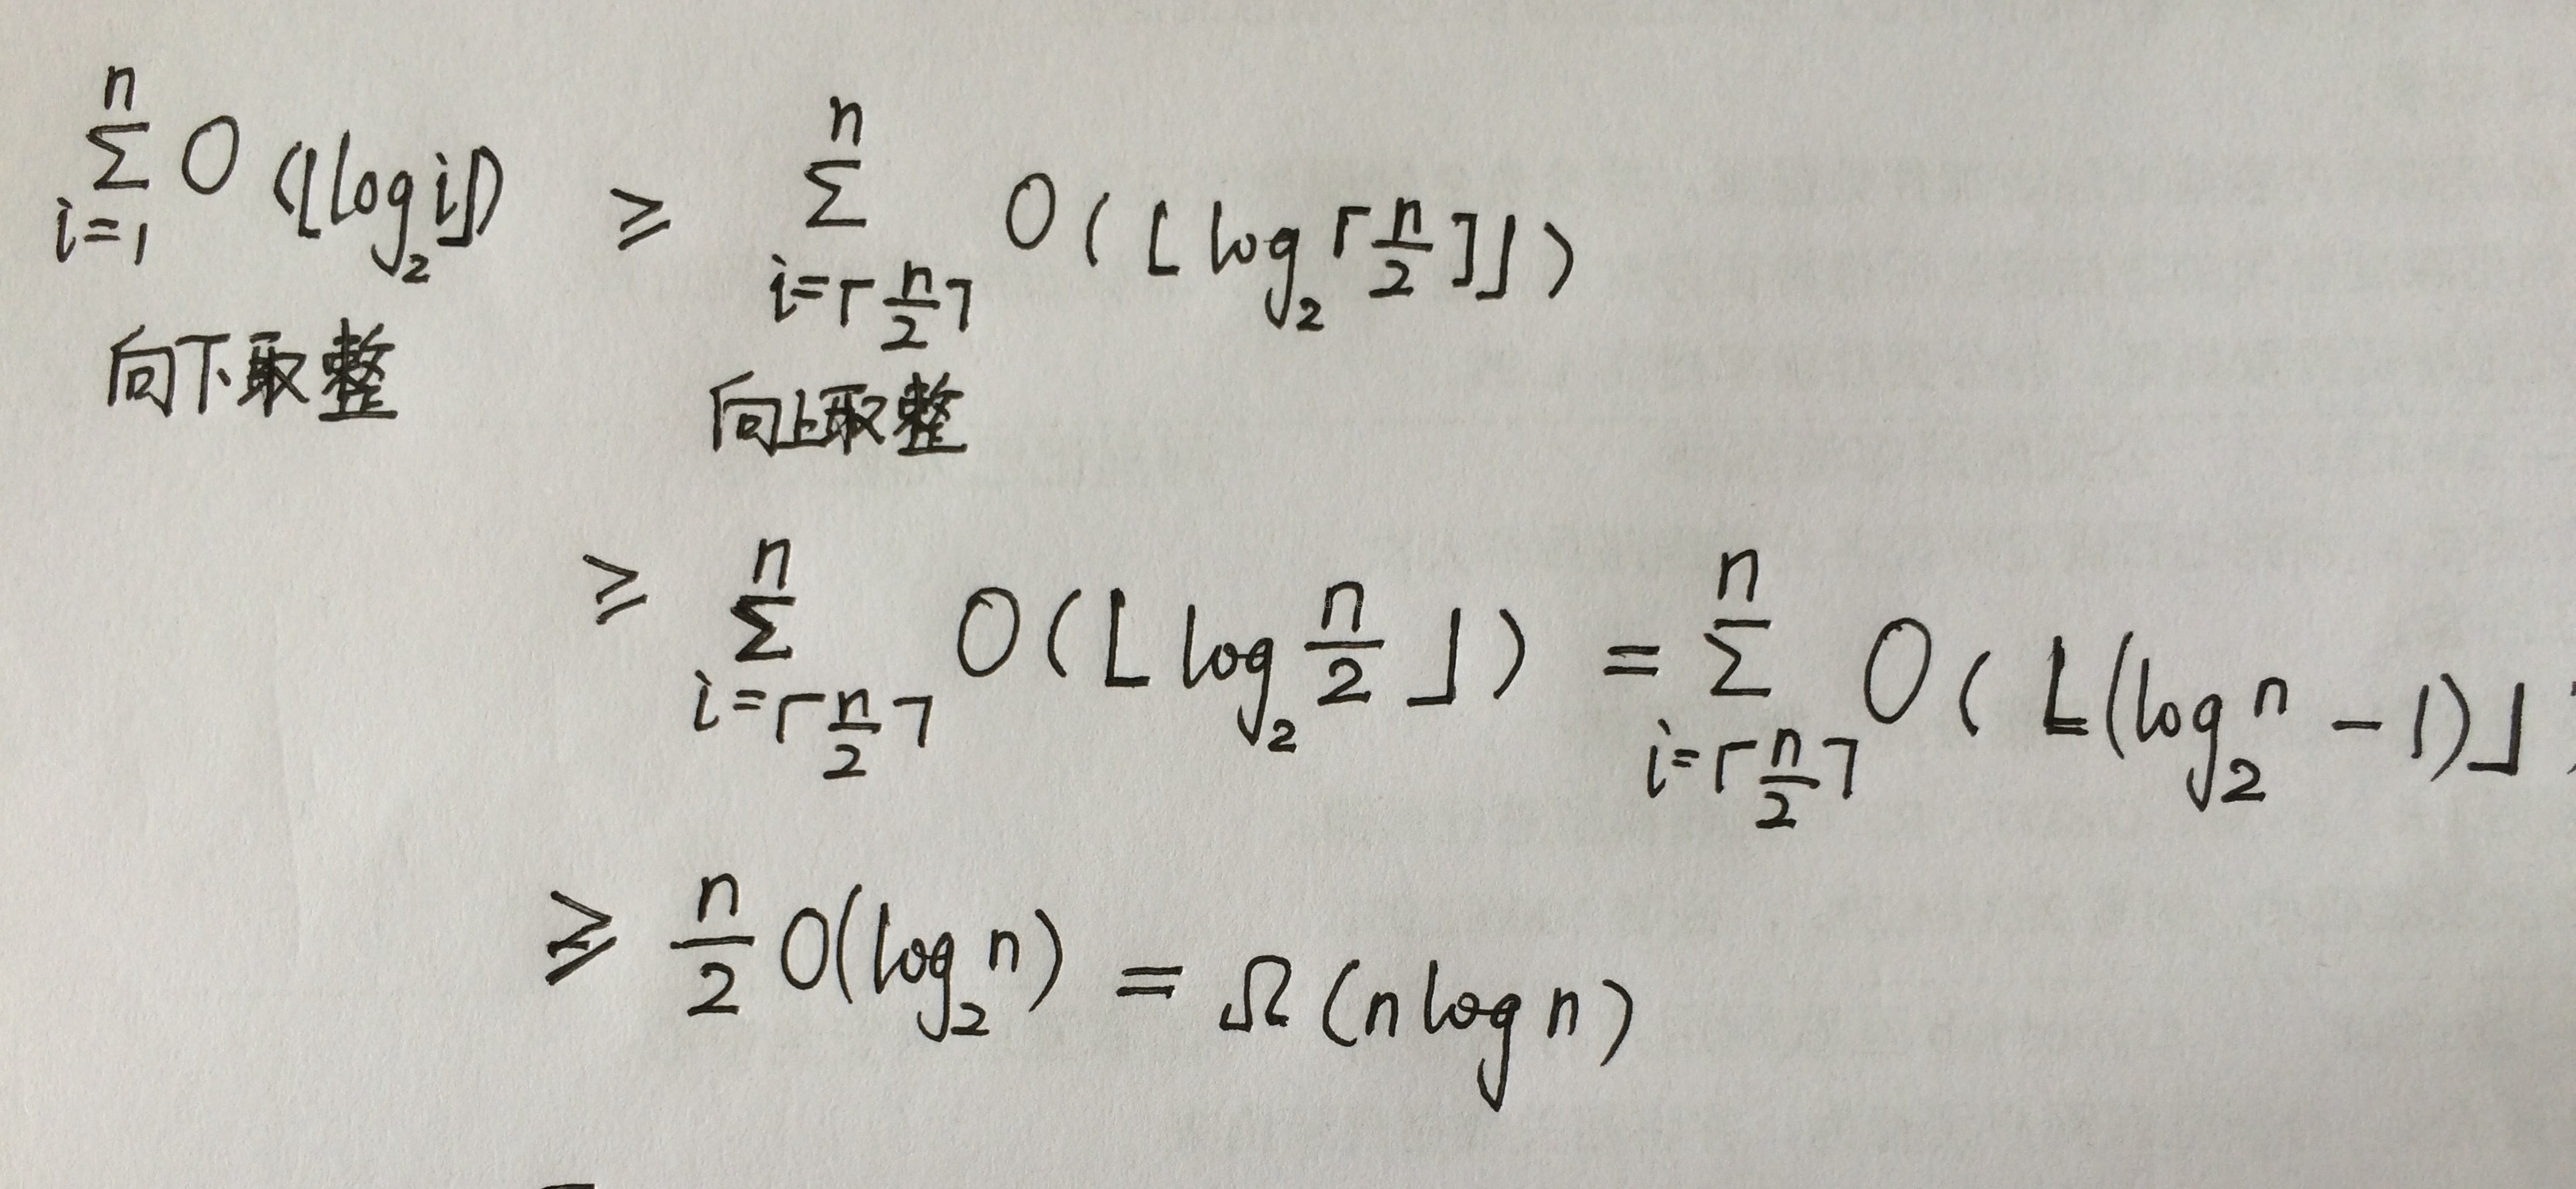 $\sum_{i=1}^{n} O(\lfloor \log_2 i \rfloor) \geq \sum_{i=\lceil \frac{n}{2} \rceil}^{n} O(\lfloor \log_2 \lceil \frac{n}{2} \rceil \rfloor)$
向下取整 向上取整
$\geq \sum_{i=\lceil \frac{n}{2} \rceil}^{n} O(\lfloor \log_2 \frac{n}{2} \rfloor) = \sum_{i=\lceil \frac{n}{2} \rceil}^{n} O(\lfloor (\log_2 n - 1) \rfloor)$
$\geq \frac{n}{2} O(\log_2 n) = \Omega(n \log n)$